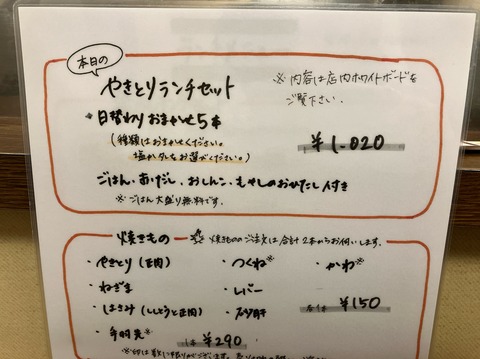 本日の
やきとりランチセット
※内容は店内ホワイトボードを
ご覧下さい.
・日替わりおまかせ5本
(種類はおまかせください。
塩かタレをお選びください。)
¥1.020
ごはん、あげだし、おしんこ、もやしのおひたし付き
※ごはん大盛り無料です.
焼きもの
焼きもののご注文は合計2本からお伺いします.
・やきとり(正肉)
つくね※
・かわ※
・ねぎま
・レバー
・はさみ(ししとうと正肉)
・砂肝
各1本 ¥150
・手羽先※
1本 ¥290